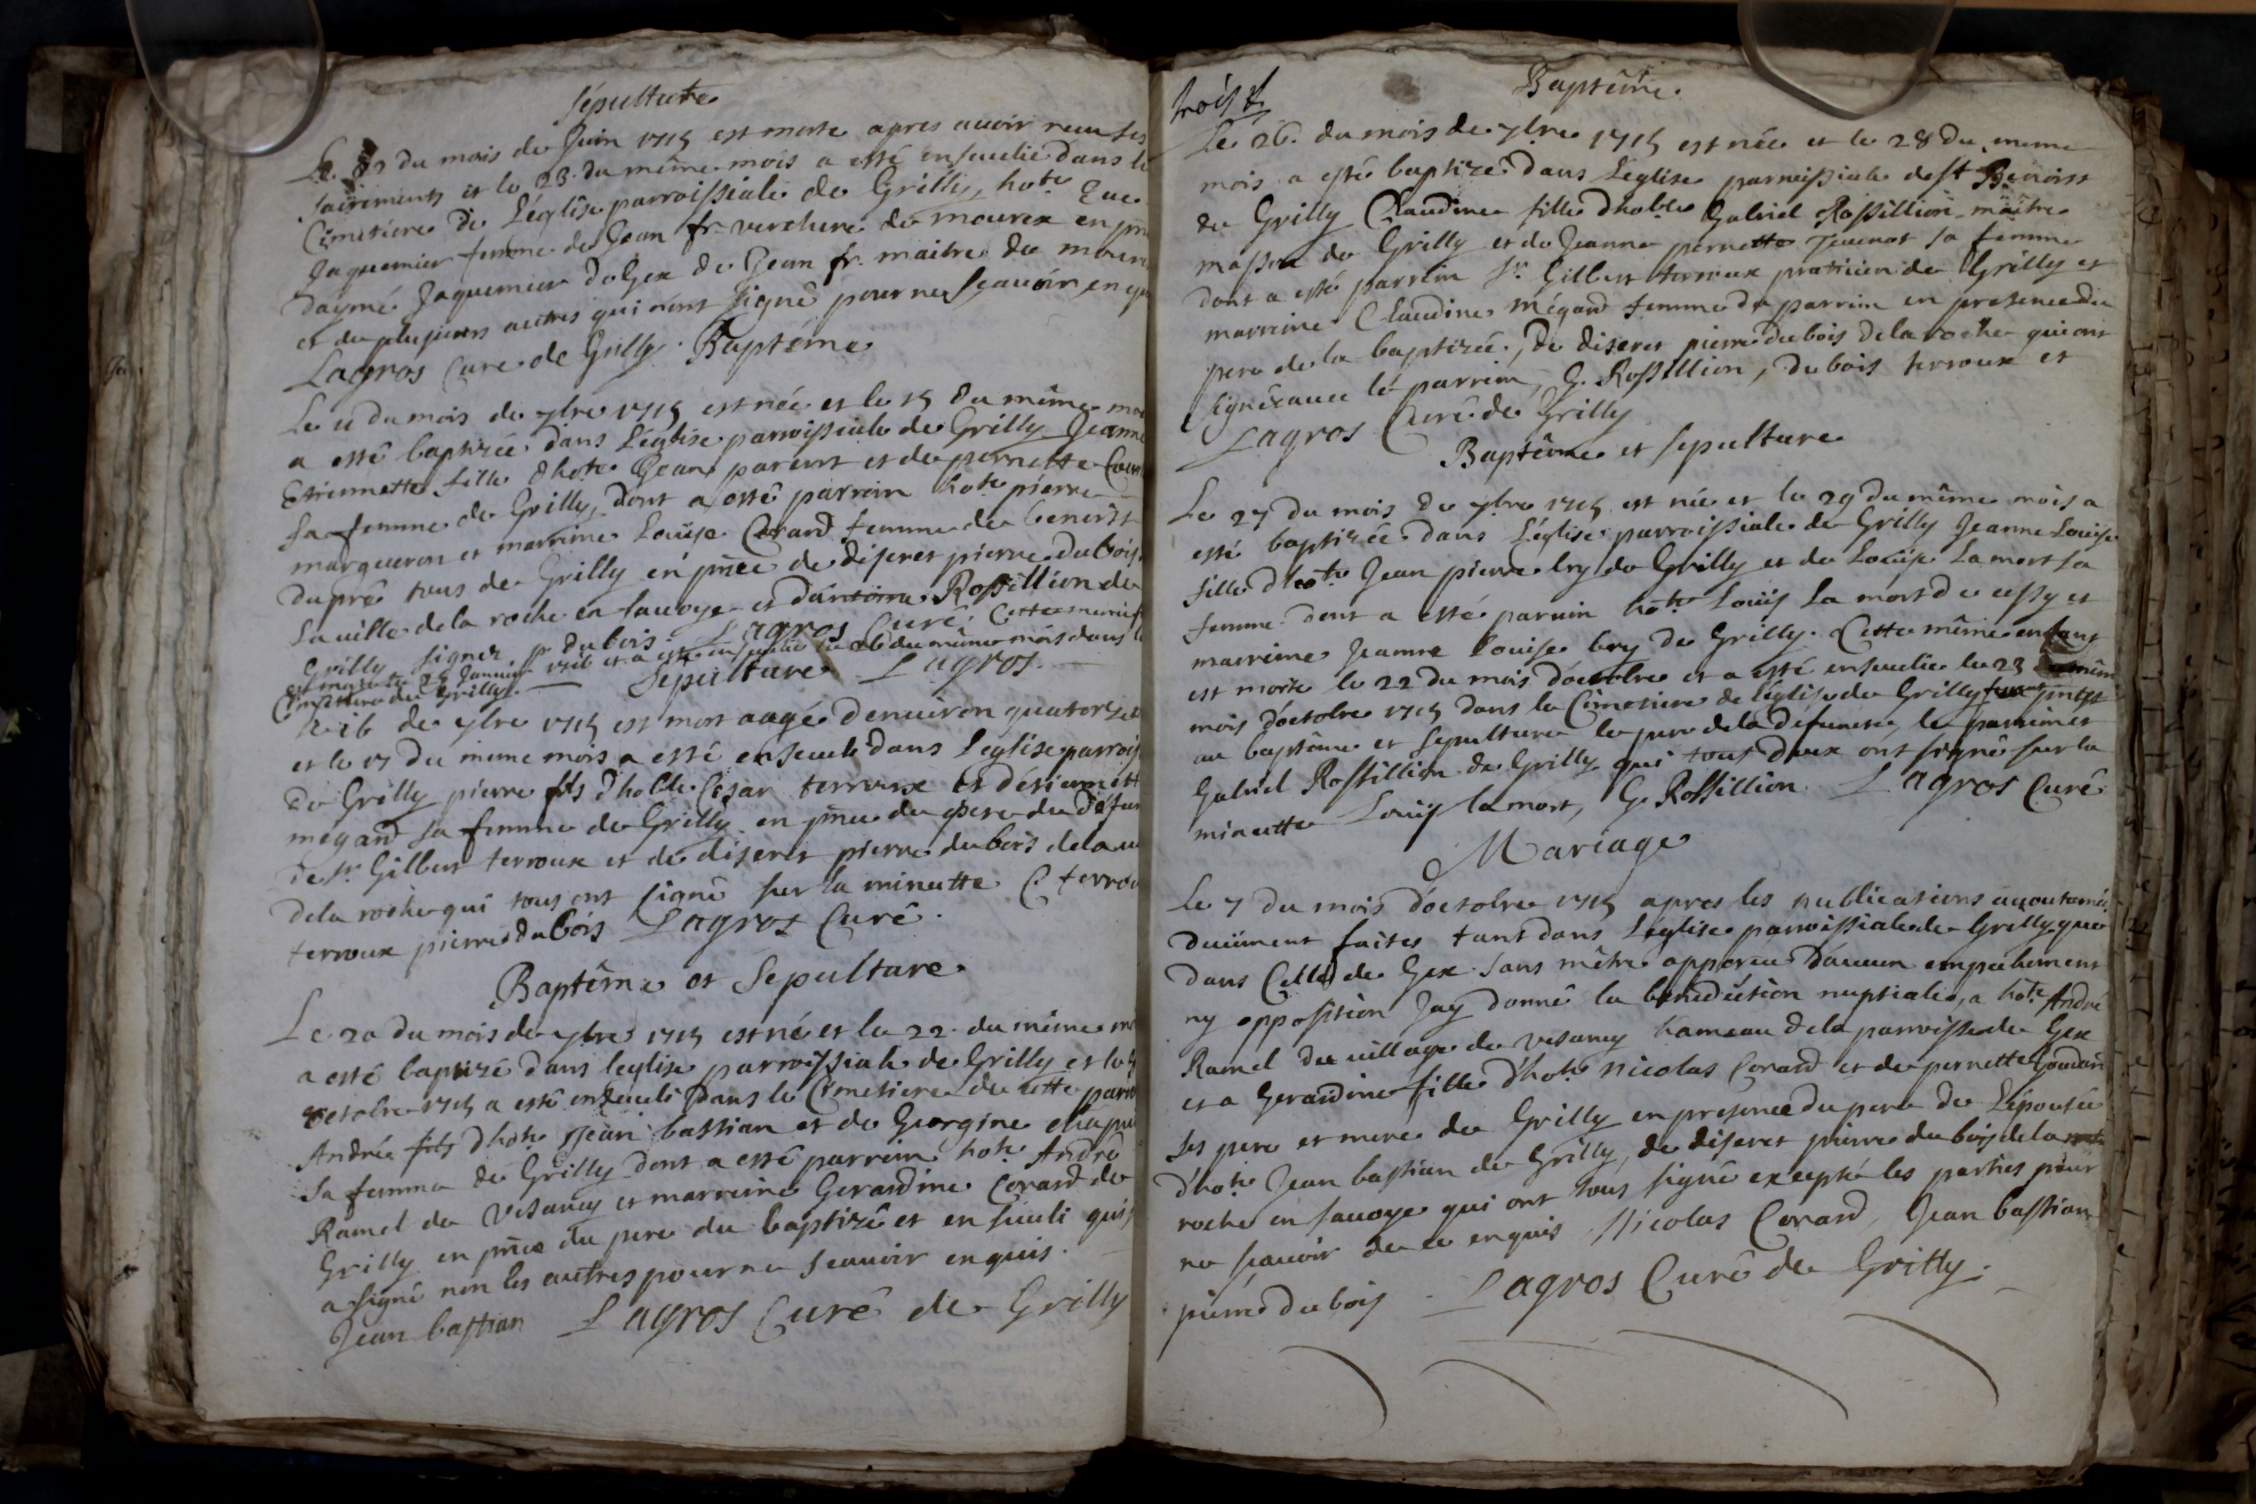 Sépulture
Le du mois de Juin 1715 est morte apres avoir receu ses
sacrements et le 23. du même mois a esté enseuelie dans le
Cimetiere de L'église parroissiale de Grilly, hote
Jaquemier femme de Jean fr. verchere de mourex en
daymé Jaquemier de Gex de Jean fr. maitre de
et de plusieurs autres qui n'ont signé pour ne sçauoir en
Lagros Curé de Grilly. Baptéme
Le 11 du mois de 7bre 1715 est née et le 15 du même
a esté baptizée dans L'église parroissiale de Grilly Jeanne
Etiennette fille d'hote Jean parent et de pernette
sa femme de Grilly, dont a esté parrain hote pierre
marqueron et marrine Louïse Corard femme de benoist
dupré tous de Grilly en pñce de discret pierre Dubois
La uille de la roche en sauoye et d'antoine Rossillion de
Grilly signer p. dubois. Lagros Curé. Cette même
est morte le 25 Januier 1716 et a esté enseuelie le 26 du même mois dans le
Cimetiere de Grilly. Lagros
Sépulture
Le 16 de 7bre 1715 est mort aagé d'enuiron quatorze
et le 17 du meme mois a esté enseueli dans l'église
de Grilly pierre fils d'hoble Cesar terroux et d'etiennette
mégard sa femme de Grilly en pñce du pere du
de sr. Gilbert terroux et de discret pierre dubois de la
de la roche qui tous ont signé sur la minutte C
terroux pierre dubois Lagros Curé.
Baptême et Sepulture
Le 20 du mois de 7bre 1715 est né et le 22. du même
a esté baptizé dans leglise parroissiale de Grilly et le
octobre 1715 a esté enseueli dans le Cimetiere de cette
André fils d'hote Jean bastian et de Georgine
sa femme de Grilly dont a esté parrain hote André
Ramel de vesancy et marreine Gerardine Corard de
Grilly en pñce du pere du baptizé et enseueli qui
a signé non les autres pour ne scauoir enquis.
Jean bastian Lagros Curé de Grilly
Baptême.
Le 26. du mois de 7bre 1715 est née et le 28 du meme
mois a esté baptizée dans L'église parroissiale de St Benoist
de Grilly Claudine fille d'hoble Gabriel Rossillion maître
masson de Grilly et de Jeanne pernette sa femme
dont a esté parrin sr. Gilbert terroux praticien de Grilly et
marreine Claudine Mégard femme du parrin en presence du
pere de la baptizée, de discret pierre dubois de la roche qui ont
signé auec le parrein, G. Rossillion, Dubois terroux et
Lagros Curé de Grilly
Baptême et sepulture
Le 27 du mois de 7bre 1715 est née et le 29 du même mois a
esté baptizée dans L'église parroissiale de Grilly Jeanne Louise
fille d'hote Jean pierre bry de Grilly et de Louïse La mort sa
femme dont a esté parrain hote Louis La mort de cessy et
marreine Jeanne Louise bry de Grilly. Cette même enfant
est morte le 22 du mois d'octobre et a esté enseuelie le 23
mois d'octobre 1715 dans le Cimetiere de L'église de Grilly
au baptême et sepulture le pere de la defuncte, le parrein et
Gabriel Rossillion de Grilly qui tous deux ont signé sur la
minutte Louis la mort, G. Rossillion. Lagros Curé
Mariage
Le 7 du mois d'octobre 1715 apres les publications
duëment faites tant dans L'église parroissiale de Grilly que
dans Celle de Gex sans m'être apperceu d'aucun empechement
ny opposition Jay donné la benediction nuptiale, a hote André
Ramel du uillage de vesancy hameau de la parroisse de Gex
et a Gerardine fille d'hote Nicolas Corard et de pernette
ses pere et mere de Grilly en presence du pere de L'épousée
d'hote Jean bastian de Grilly, de discret pierre dubois de la
roche en sauoye qui ont tous signé excepté les parties pour
ne scauoir de ce enquis Nicolas Corard, Jean bastian
pierre dubois. Lagros Curé de Grilly.